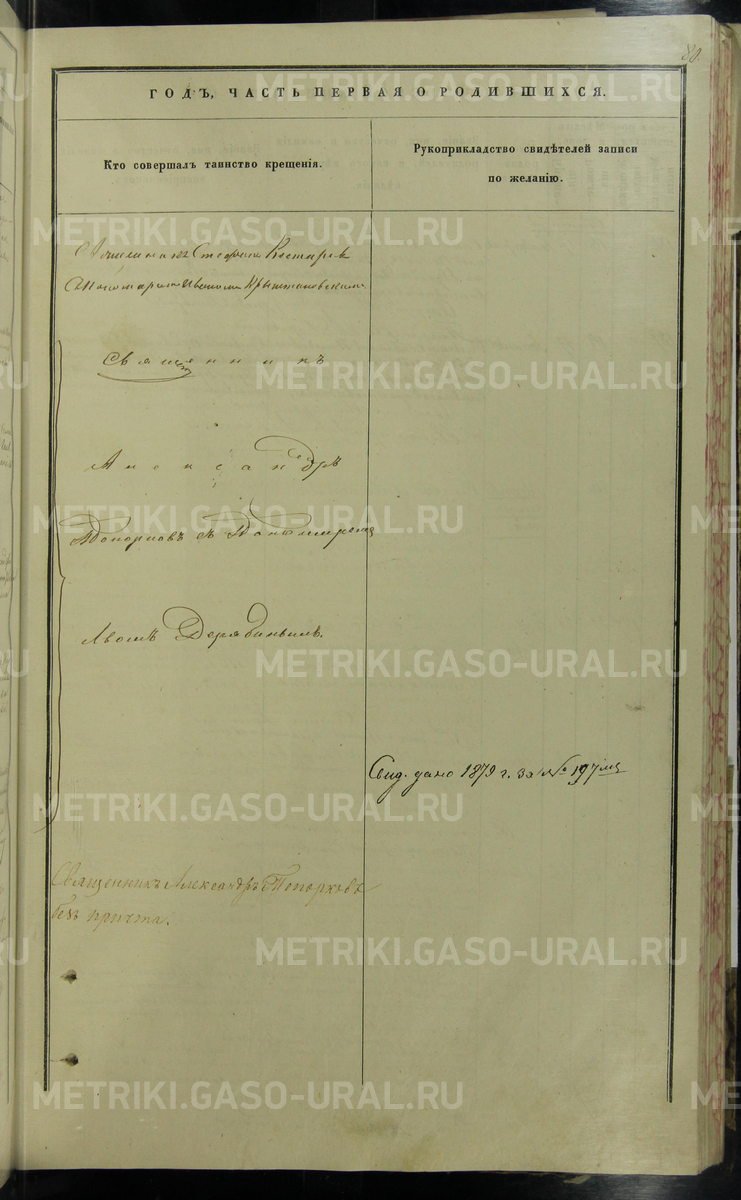 80.
ГОДЪ, ЧАСТЬ ПЕРВАЯ О РОДИВШИХСЯ.
Кто совершалъ таинство крещенія.
Рукоприкладство свидѣтелей записи
по желанію.
Костаревъ
Священникъ
Александръ
Топорковъ съ
Львомъ Дерябинымъ.
Свид. дано 1879 г. за № 197мъ
Священникъ Александръ Топорковъ
безъ причта.
METRIKI.GASO-URAL.RU